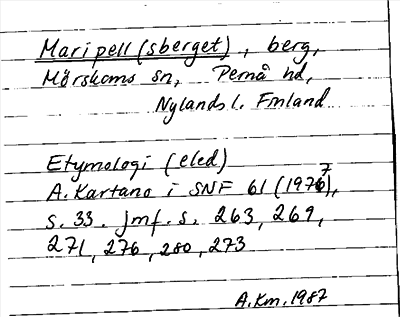 Maripell(sberget), berg,
Mörskoms sn, Pernå hd,
Nylands l. Finland
Etymologi (eled)
A. Kartano i SNF 61 (1977),
s. 33. Jmf. s. 263, 269,
271, 276, 280, 273
A.Km. 1987